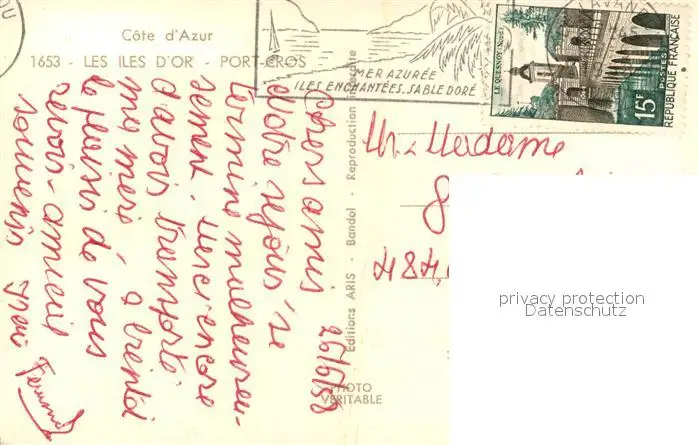 Côte d'Azur
1653 - LES ILES D'OR - PORT-CROS
MER AZURÉE
ILES ENCHANTÉES. SABLE DORÉ
LE QUESNOY (Nord)
15F
POSTES
REPUBLIQUE FRANÇAISE
LAVAN
Editions ARIS - Bandol - Reproduction interdite
PHOTO
VERITABLE
26/5/58
Chers amis
Notre séjour se
termine malheureu-
sement. Merci encore
d'avoir transporté
ma mère
le plaisir de vous
revoir - amical
souvenir
Mr. Madame
8
484,
privacy protection
Datenschutz